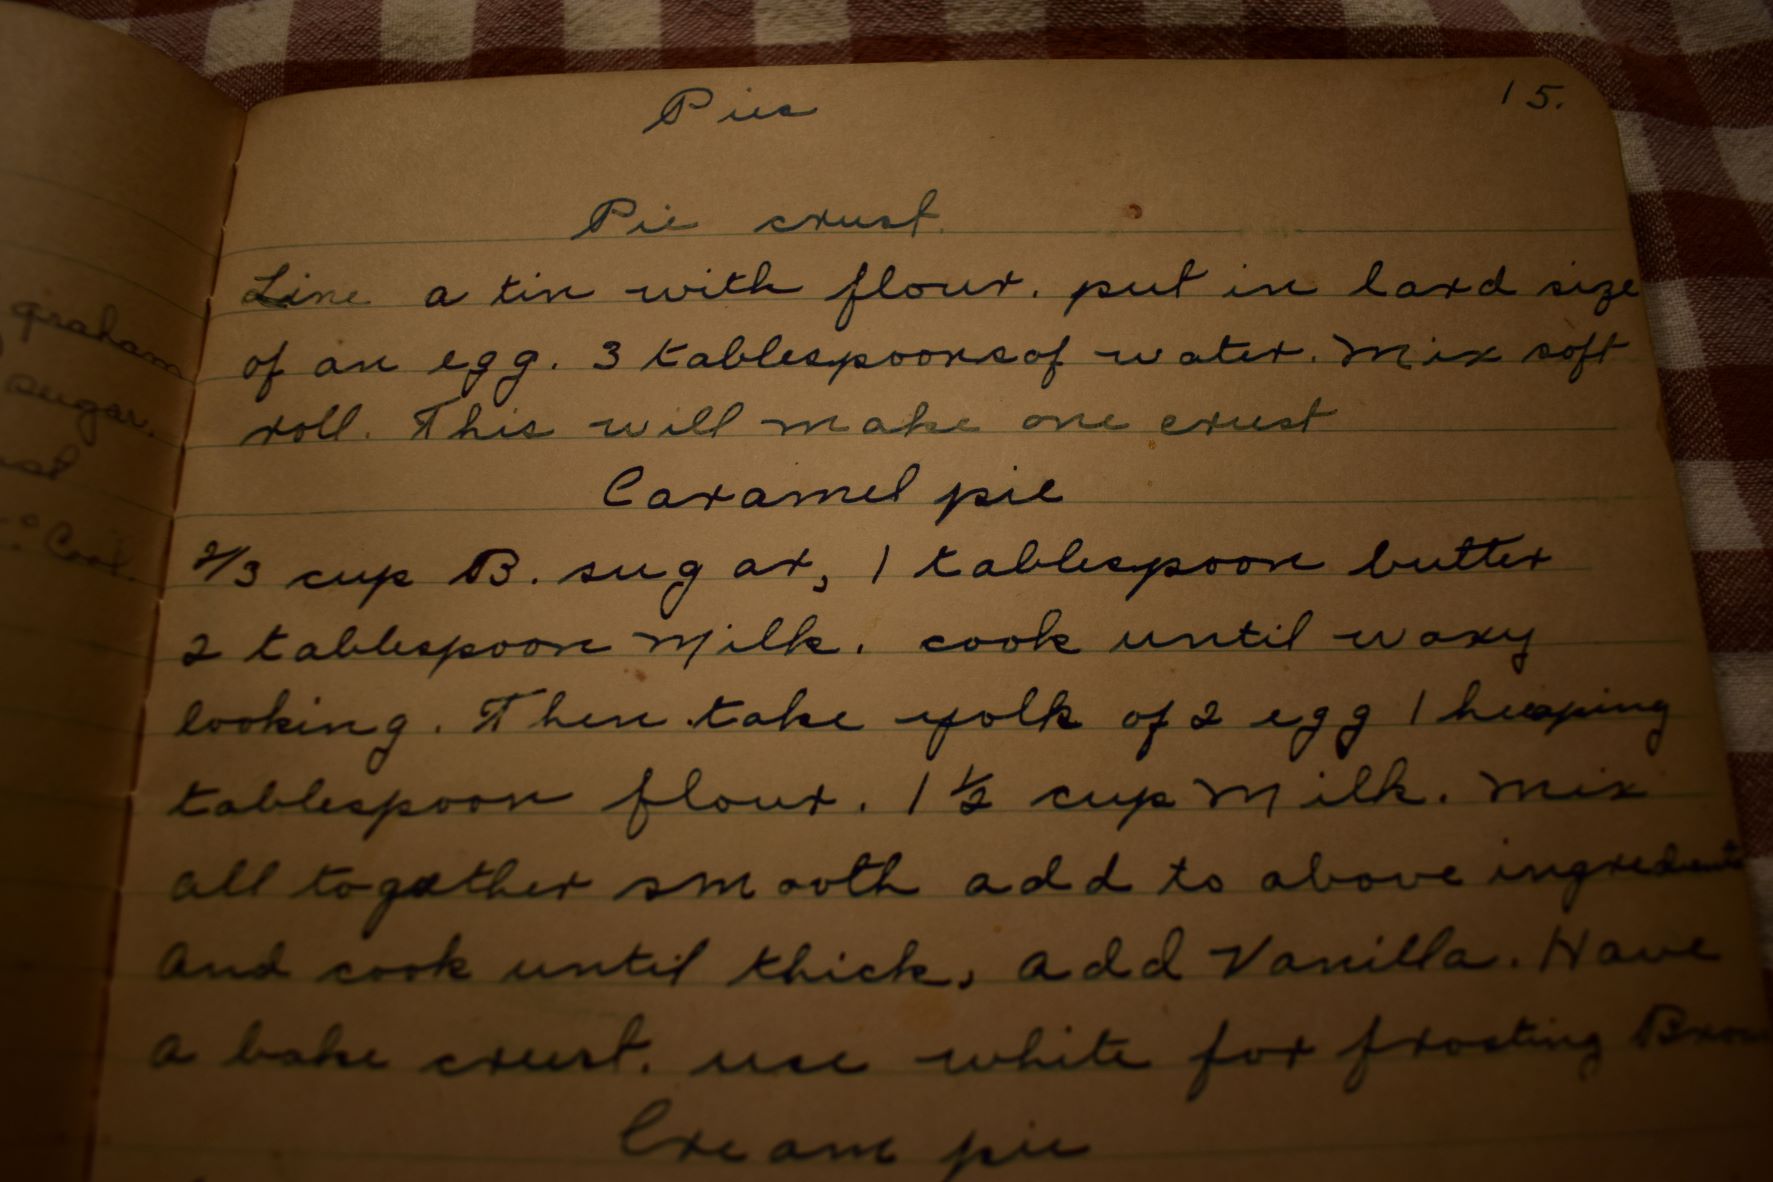 graham
sugar.
Cool.
Pies
15.
Pie crust.
Line a tin with flour. put in lard size
of an egg. 3 tablespoonsof water. Mix soft
roll. This will make one crust
Caramel pie
2/3 cup B. sugar, 1 tablespoon butter
2 tablespoon Milk. cook until waxy
looking. Then take yolk of 2 egg 1 heaping
tablespoon flour. 1 1/2 cup Milk. Mix
all together smooth add to above ingredients
and cook until thick, add Vanilla. Have
a bake crust. use white for frosting
Cream pie